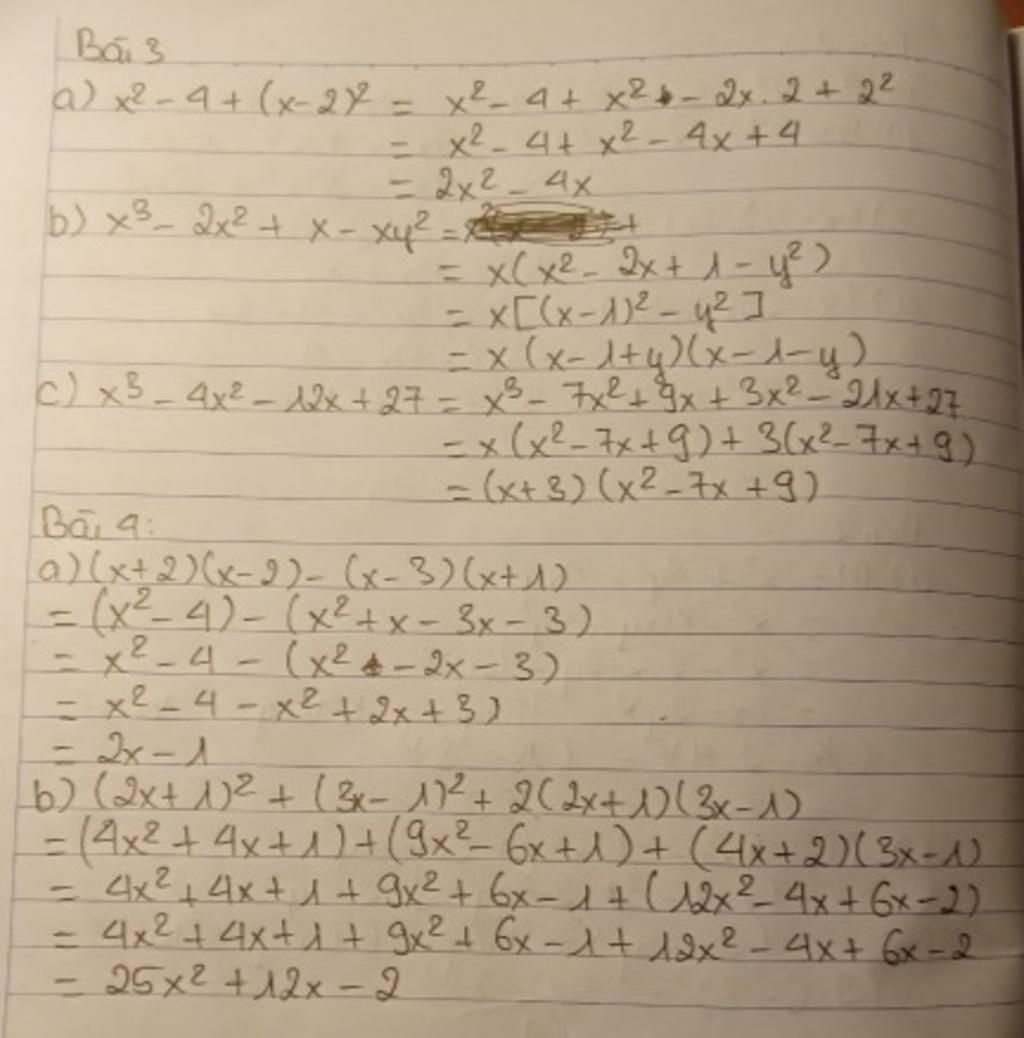 Bài 3
a) x² - 4 + (x-2)² = x² - 4 + x² - 2x.2 + 2²
= x² - 4 + x² - 4x + 4
= 2x² - 4x
b) x³ - 2x² + x - xy² =
= x(x² - 2x + 1 - y²)
= x[(x-1)² - y²]
= x(x-1+y)(x-1-y)
c) x³ - 4x² - 12x + 27 = x³ - 7x² + 9x + 3x² - 21x + 27
= x(x² - 7x + 9) + 3(x² - 7x + 9)
= (x+3)(x² - 7x + 9)
Bài 4:
a) (x+2)(x-2) - (x-3)(x+1)
= (x² - 4) - (x² + x - 3x - 3)
= x² - 4 - (x² - 2x - 3)
= x² - 4 - x² + 2x + 3)
= 2x - 1
b) (2x+1)² + (3x-1)² + 2(2x+1)(3x-1)
= (4x² + 4x + 1) + (9x² - 6x + 1) + (4x+2)(3x-1)
= 4x² + 4x + 1 + 9x² + 6x - 1 + (12x² - 4x + 6x - 2)
= 4x² + 4x + 1 + 9x² + 6x - 1 + 12x² - 4x + 6x - 2
= 25x² + 12x - 2